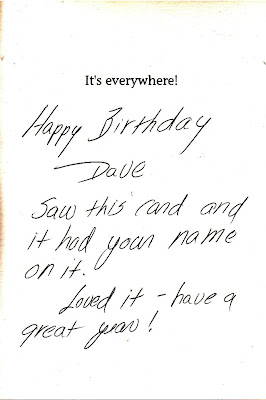 It's everywhere!
Happy Birthday
Dave
Saw this card and
it had your name
on it.
Loved it - have a
great year!